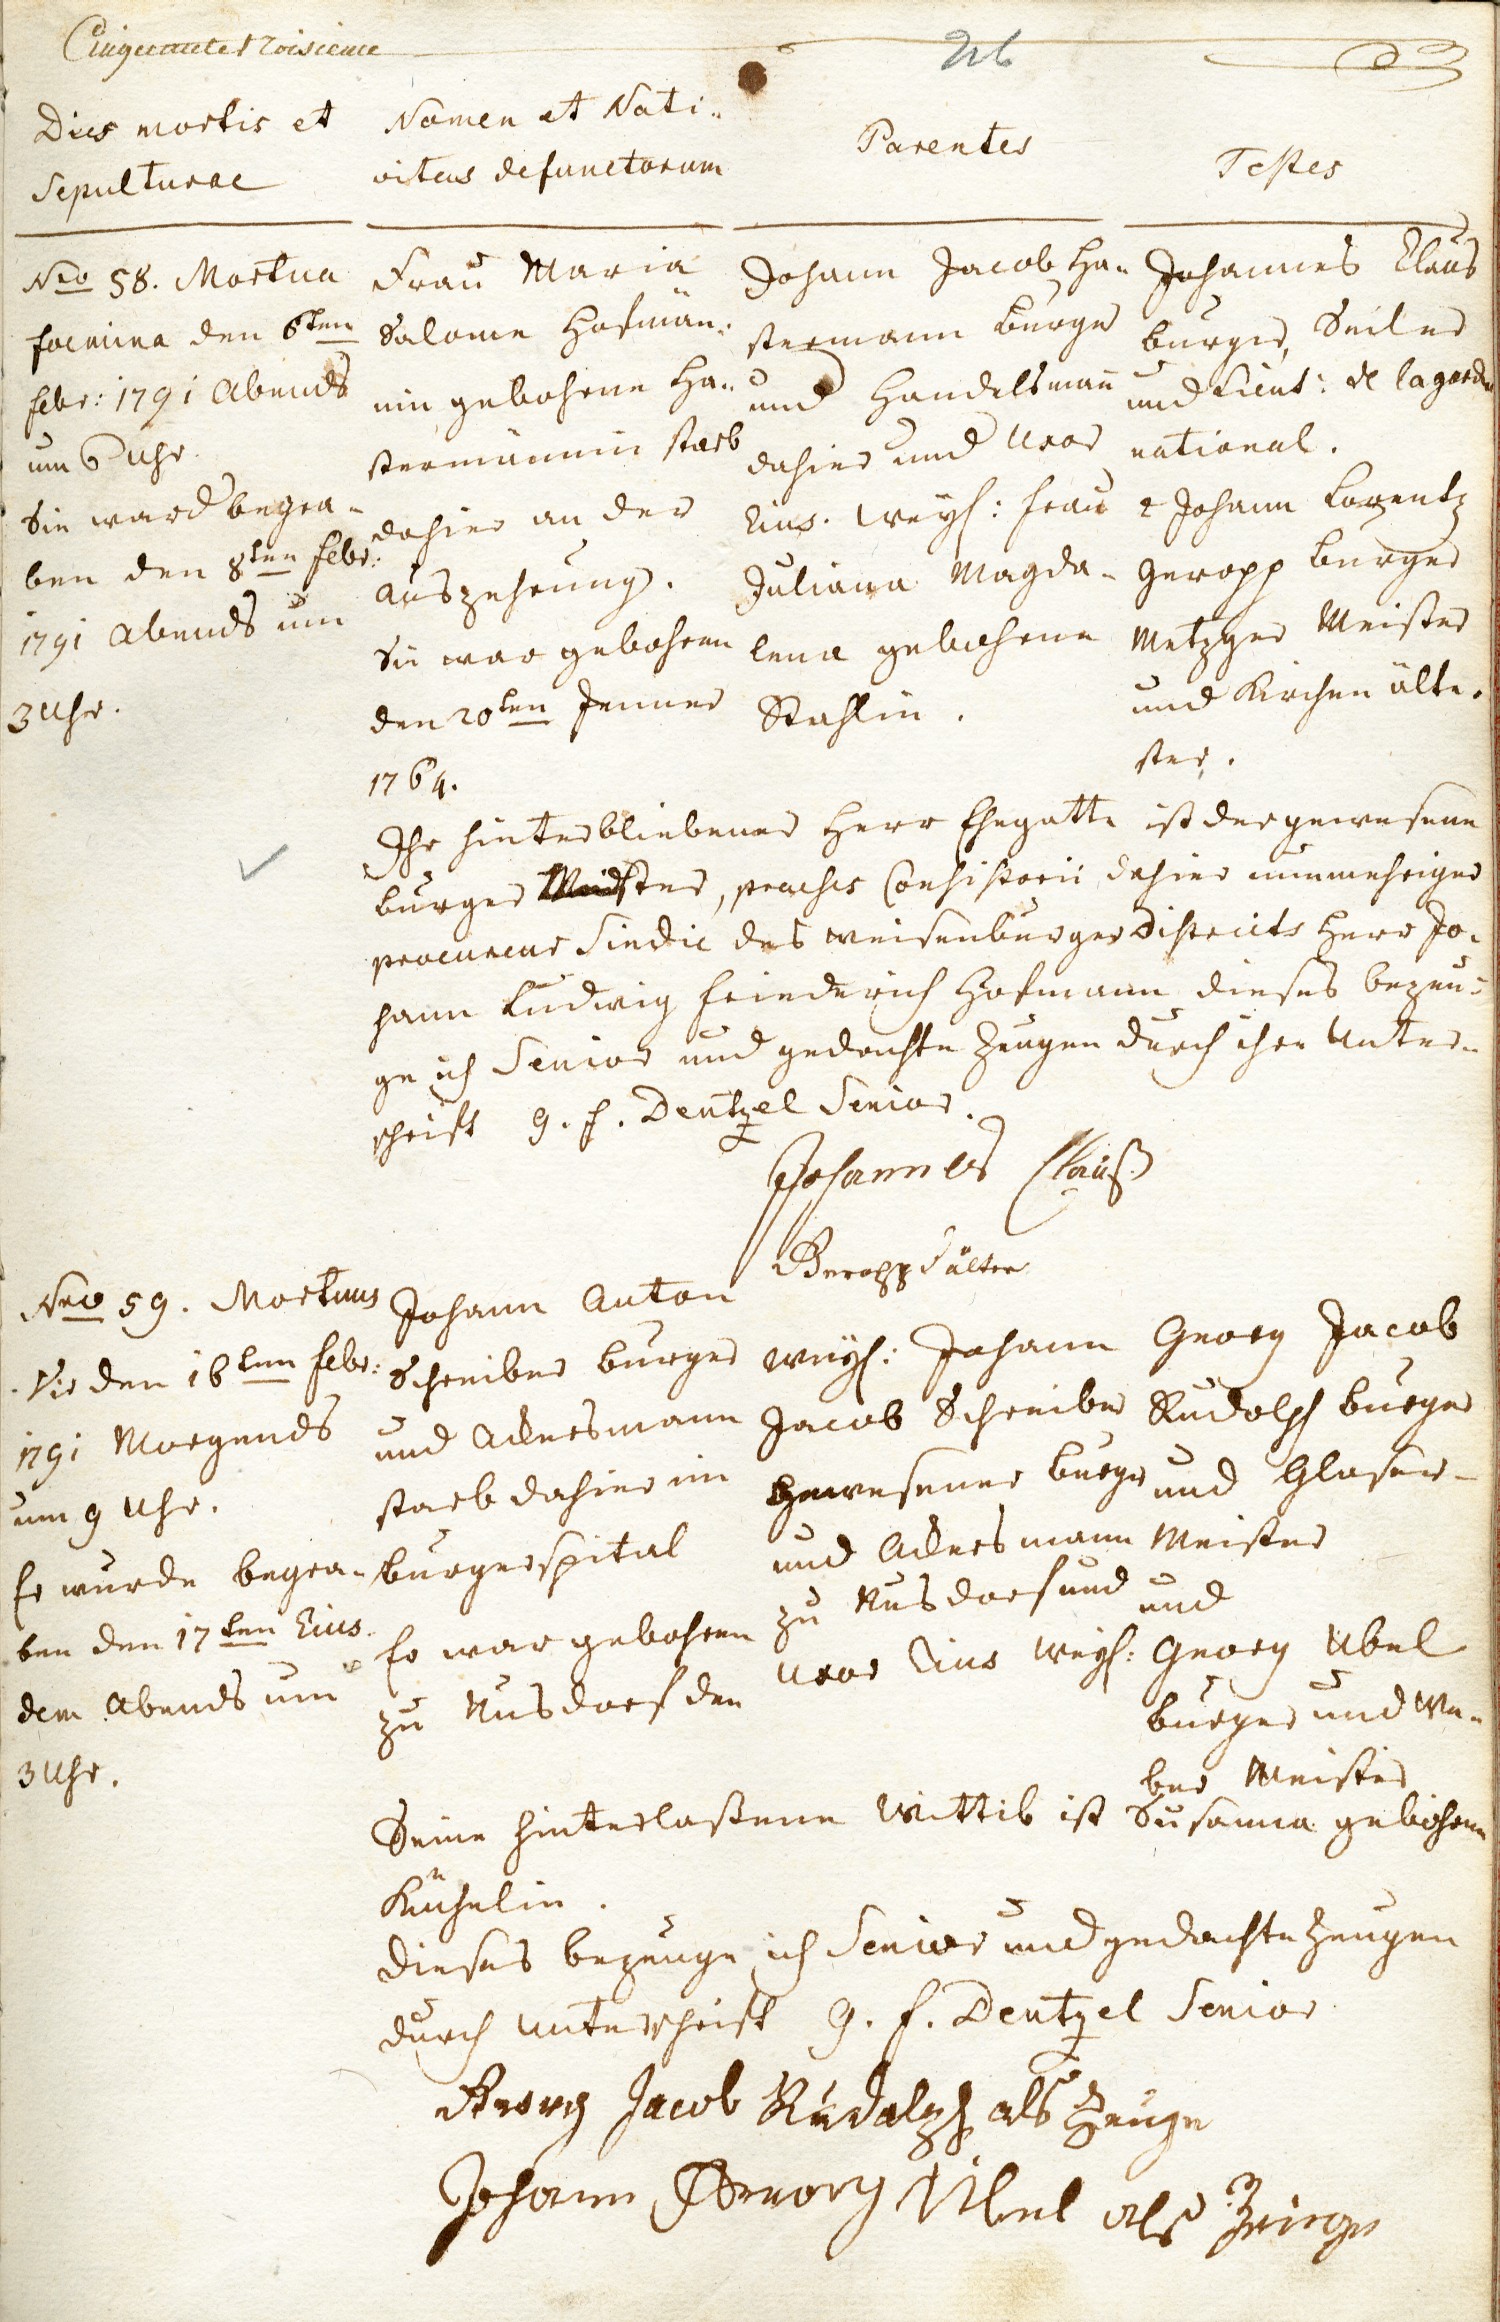 Cinquante troisieme
26
Dies mortis et
Sepulturae
Nomen et Nati-
vitas defunctorum
Parentes
Testes
Nro 58. Mortua
foemina den 6ten
febr: 1791 Abends
um 6 Uhr.
Sie ward begra-
ben den 8ten febr:
1791 Abends um
3 Uhr.
Frau Maria
Salome Hofmän-
nin gebohrne Ha-
stermännin starb
dahier an der
Auszehrung.
Sie war gebohren
den 20ten Jenner
1764.
Johann Jacob Ha-
stermann Burger
und Handelsmann
dahier und Uxor
Eius. Weyl: Frau
Juliana Magda-
lena gebohrne
Stahlin.
Johannes Claus
burger, Seiler
und Lieut: de la garde
national.
2 Johann Lorentz
Geropp burger
Metzger Meister
und Kirchen älte-
ster.
Ihr hinterbliebener Herr Ehegatte ist der gewesene
burger Meister, praeses Consistorii dahier nunmehriger
procureur Sindic des weisenburger Districts Herr Jo-
hann Ludwig Friederich Hofmann dieses bezeu-
ge ich Senior und gedachte Zeugen durch ihre Unter-
schrift G. F. Dentzel Senior.
Johannes Clauß
Geropp Eälter
Nro 59. Mortuus
Vir den 16ten febr:
1791 Morgends
um 9 Uhr.
Er wurde begra-
ben den 17ten Eius
dem Abends um
3 Uhr.
Johann Anton
Schreiber burger
und Ackersmann
starb dahier im
burgerspital
Er war gebohren
zu Nusdorf den
weyl: Johann
Jacob Schreiber
gewesener burger
und Ackersmann
zu Nusdorf und
Uxor Eius weyl:
Georg Jacob
Rudolph burger
und Glaser-
Meister
und
Georg Ubel
burger und We-
ber Meister
Seine hinterlaßene Wittib ist Susanna gebohrne
Küchelin.
Dieses bezeuge ich Senior und gedachte Zeugen
durch Unterschrift G. F. Dentzel Senior
Georg Jacob Rudolph als Zeuge
Johann Georg Übel als Zeige